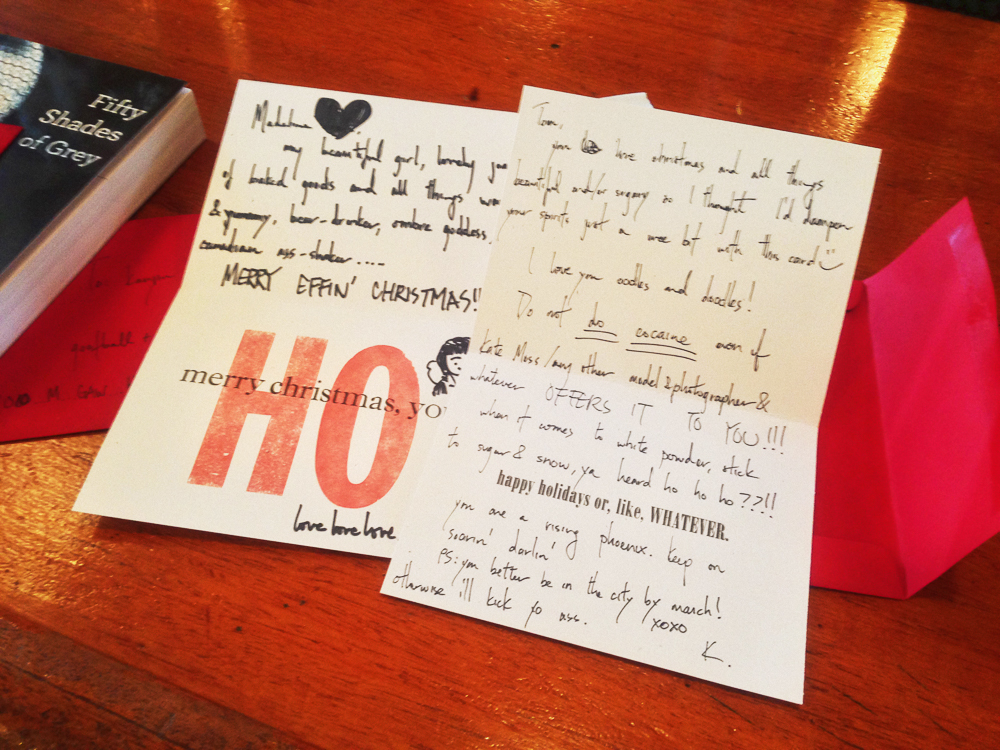 Fifty
Shades
of Grey
my beautiful girl, lovely
of baked goods and all things
& yummy, beer-drinker, ombre goddess,
canadian ass-shaker ....
MERRY EFFIN' CHRISTMAS!!
HO
merry christmas, yo
love love love
you love christmas and all things
beautiful and/or sugary so I thought I'd dampen
your spirits just a wee bit with this card
I love you oodles and doodles!
Do not do cocaine even if
Kate Moss/any other model &photographer &
whatever OFFERS IT TO YOU!!!
when it comes to white powder, stick
to sugar & snow, ya heard ho ho ho??!!
happy holidays or, like, WHATEVER.
you are a rising phoenix. keep on
soarin' darlin'
PS: you better be in the city by march!
otherwise i'll kick yo ass.
xoxo
K.